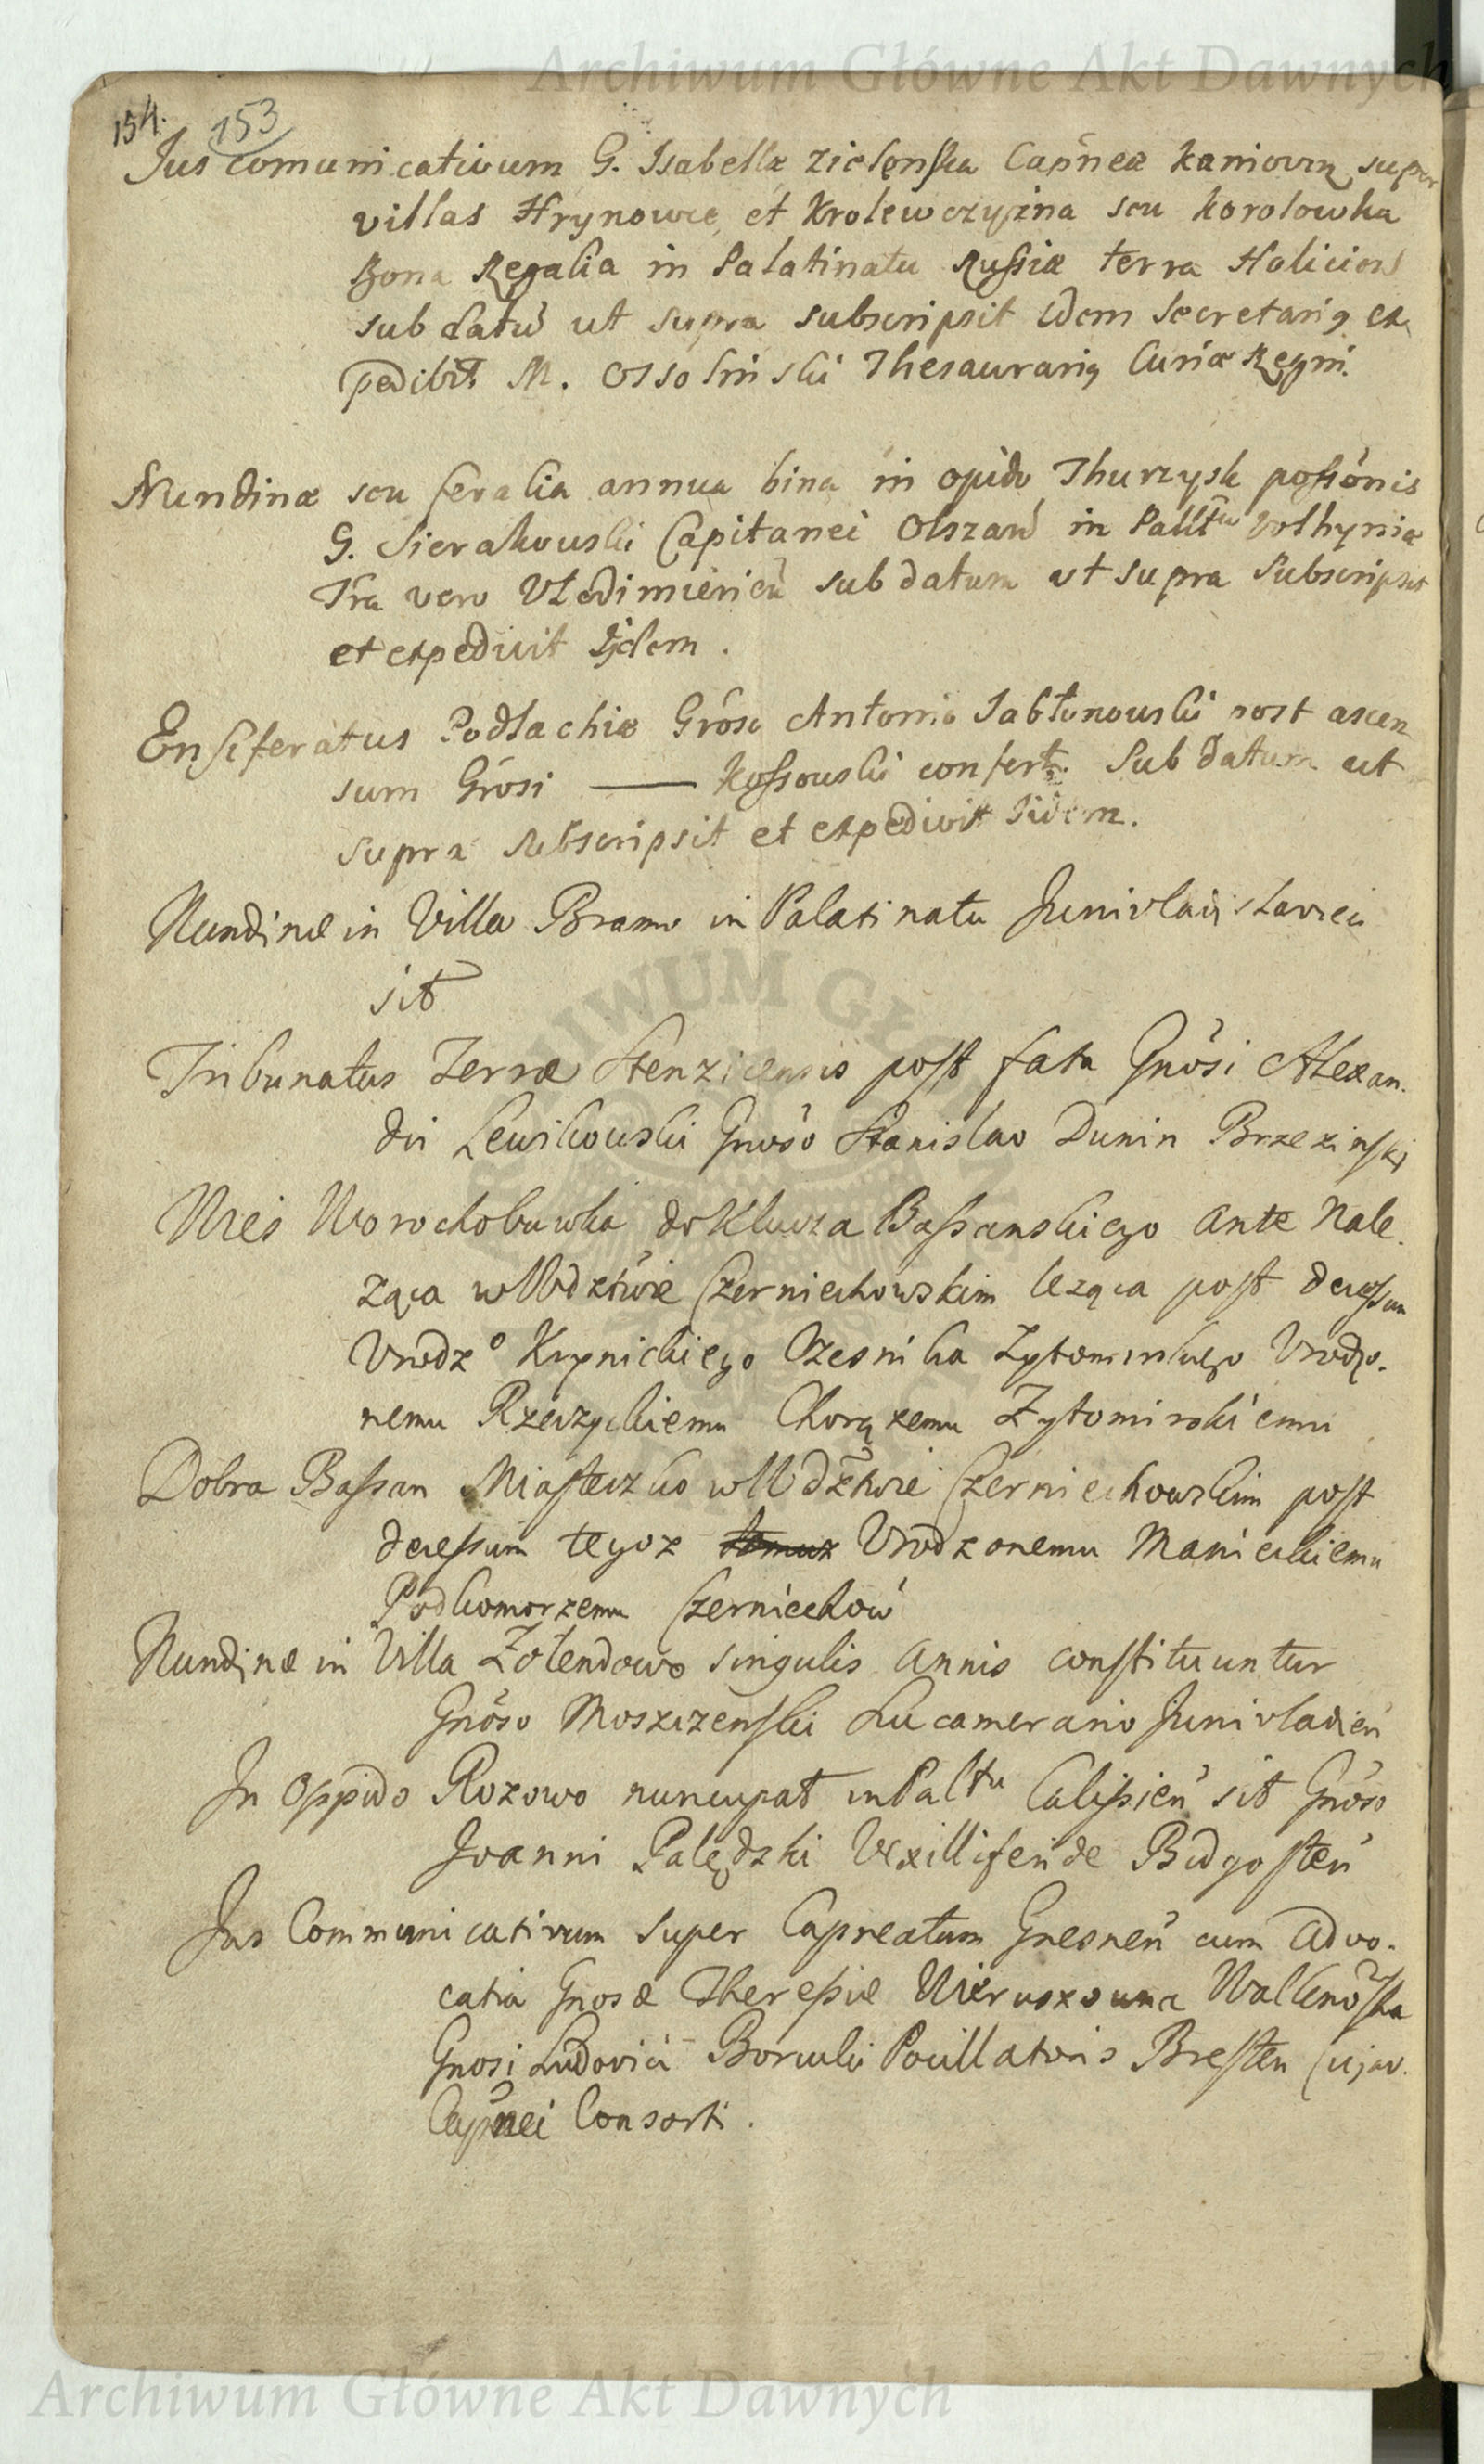 Archiwum Główne Akt Dawnych
154. 153
Jus comunicativum G. Isabellæ Zielenska Capñeæ Kaniovien super
villas Hrynowce et Krolewczyzna seu Korolowka
Bona Regalia in Palatinatu Russiæ terra Halicien
sub datũ ut supra subscripsit idem Secretariq ex
pedibit M. Ossolinski Thesaurariq Curiæ Regni.
Nundinæ seu feralia annua bina in opido Thurzysk possõnis
G. Sierakouski Capitanei Olszan in Palltu Volhyniæ
Tra vero Vlodimirien sub datum ut supra Subscripsit
et expedivit Ijdem.
Ensiferatus Podlachiæ Grõso Antonio Jabłonouski post ascen
sum Grõsi —— Kossouski confert. Sub datum ut
supra subscripsit et expedivit Iidem.
Nundinæ in Villa Bramo in Palatinatu Junivladislavien
sit
Tribunatus Terræ Stenzicensis post fata Gnõsi Alexan.
dri Lewikouski Gnõso Stanislao Dunin Brzezinski
Wies Worochobuwka do Klucza Bassanskiego ante nale.
ząca w Wdztwie Czerniechowskim leząca post decessum
Vrodz° Krynickiego Czesnika Zytomirskiego Vrodzo.
nemu Rzeczyckiemu Chorązemu Zytomirskiemu
Dobra Bassan Miasteczko w Wdztwie Czerniechowskim post
decessum tegoz Vrodzonemu Manieckiemu
Podkomorzemu Czerniechow
Nundinæ in Villa Zołendowo singulis annis constituuntur
Gnõso Moszczenski Succamerario Junivladien
In Oppido Rozowo nuncupat in Paltu Calissien sit Gnõso
Joanni Palędzki Vexilliferide Bidgosten
Jus Communicativum super Capneatum Gnesnen cum advo.
catia Gnosæ Theresiæ Nieruszouna Walknoska
Gnosi Ludovici Borucki Pocillatoris Bresten Cujav.
Capñei Consorti.
Archiwum Główne Akt Dawnych